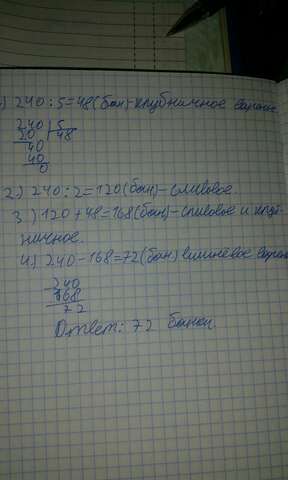 1) 240 : 5 = 48 (бан) - клубничное варенье
240 | 5
20 | 48
40
40
0
2) 240 : 2 = 120 (бан) - сливовое
3) 120 + 48 = 168 (бан) - сливовое и клуб-
ничное.
4) 240 - 168 = 72 (бан) вишнёвое варенье
240
168
72
Ответ: 72 банки.